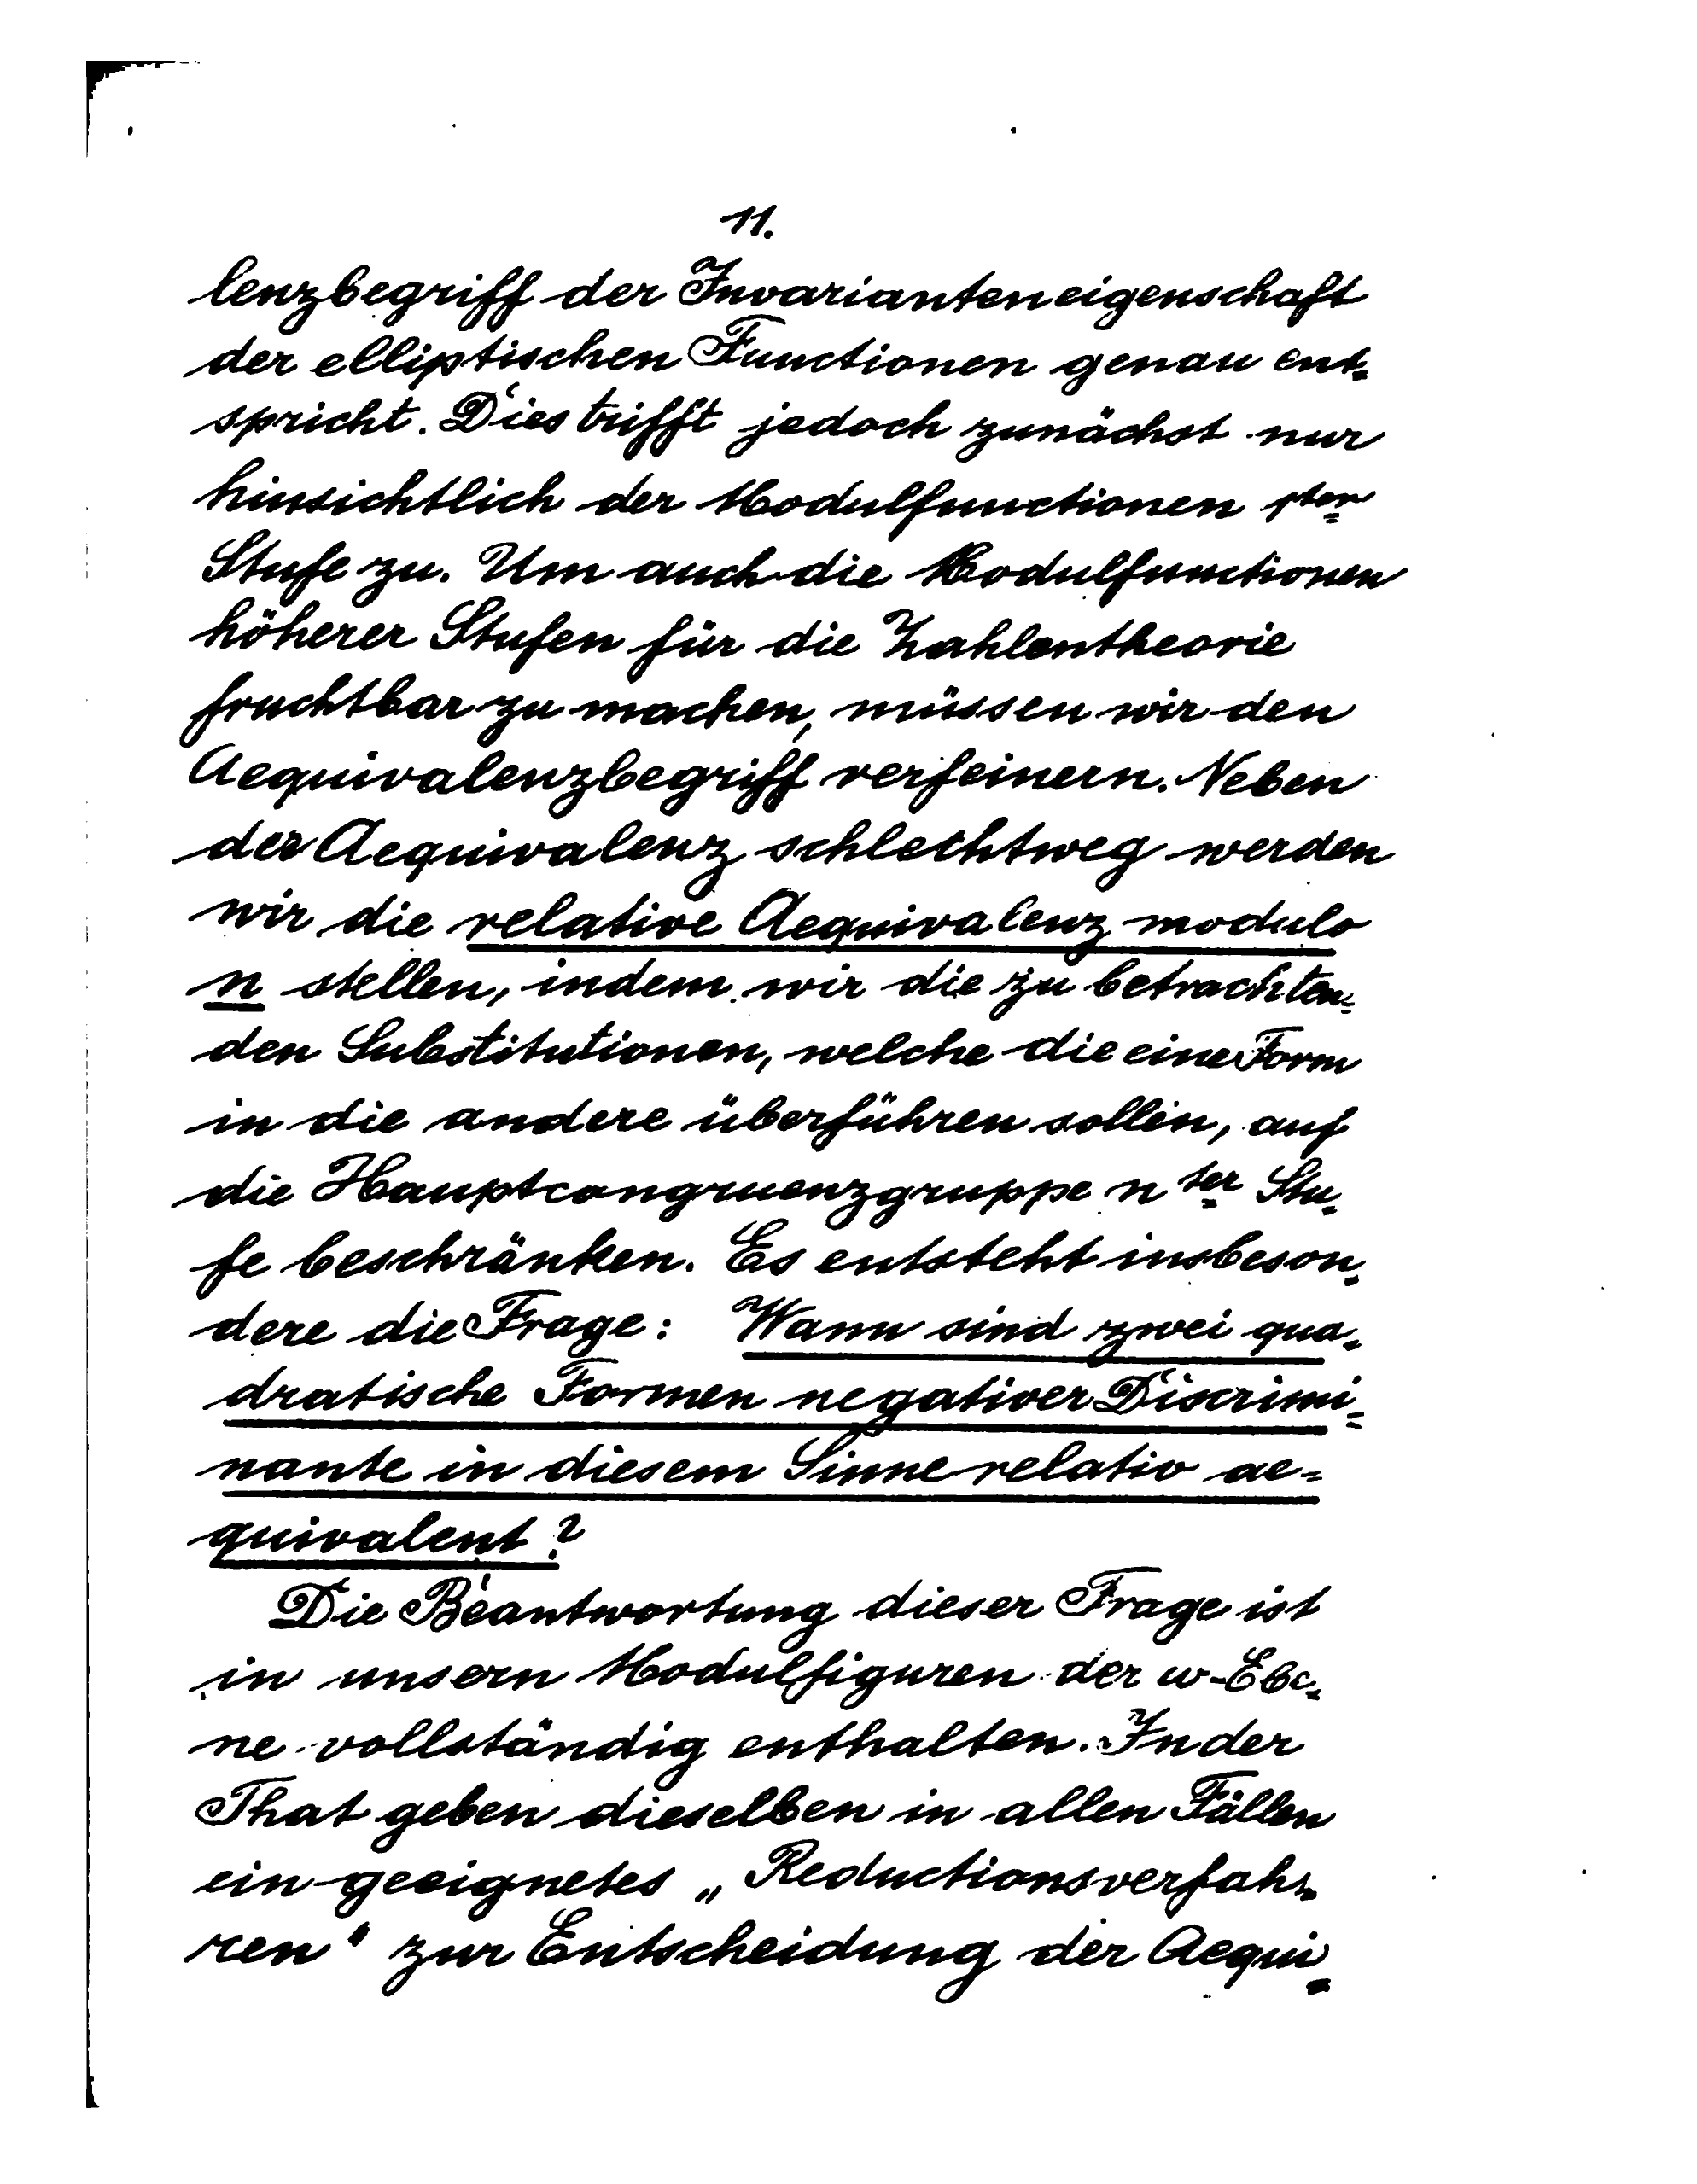 11.
lenzbegriff der Invarianteneigenschaft
der elliptischen Functionen genau ent=
spricht. Dies trifft jedoch zunächst nur
hinsichtlich der Modulfunctionen 1ter
Stufe zu. Um auch die Modulfunctionen
höherer Stufen für die Zahlentheorie
fruchtbar zu machen, müssen wir den
Aequivalenzbegriff verfeinern. Neben
der Aequivalenz schlechtweg werden
wir die relative Aequivalenz modulo
n stellen, indem wir die zu betrachten=
den Substitutionen, welche die eine Form
in die andere überführen sollen, auf
die Hauptcongruenzgruppe n ter Stu=
fe beschränken. Es entsteht insbeson=
dere die Frage: Wann sind zwei qua=
dratische Formen negativer Discrimi=
nante in diesem Sinne relativ ae=
quivalent?
Die Beantwortung dieser Frage ist
in unsern Modulfiguren der ω-Ebe=
ne vollständig enthalten. In der
That geben dieselben in allen Fällen
ein geeignetes „Reductionsverfah=
ren" zur Entscheidung der Aequi=